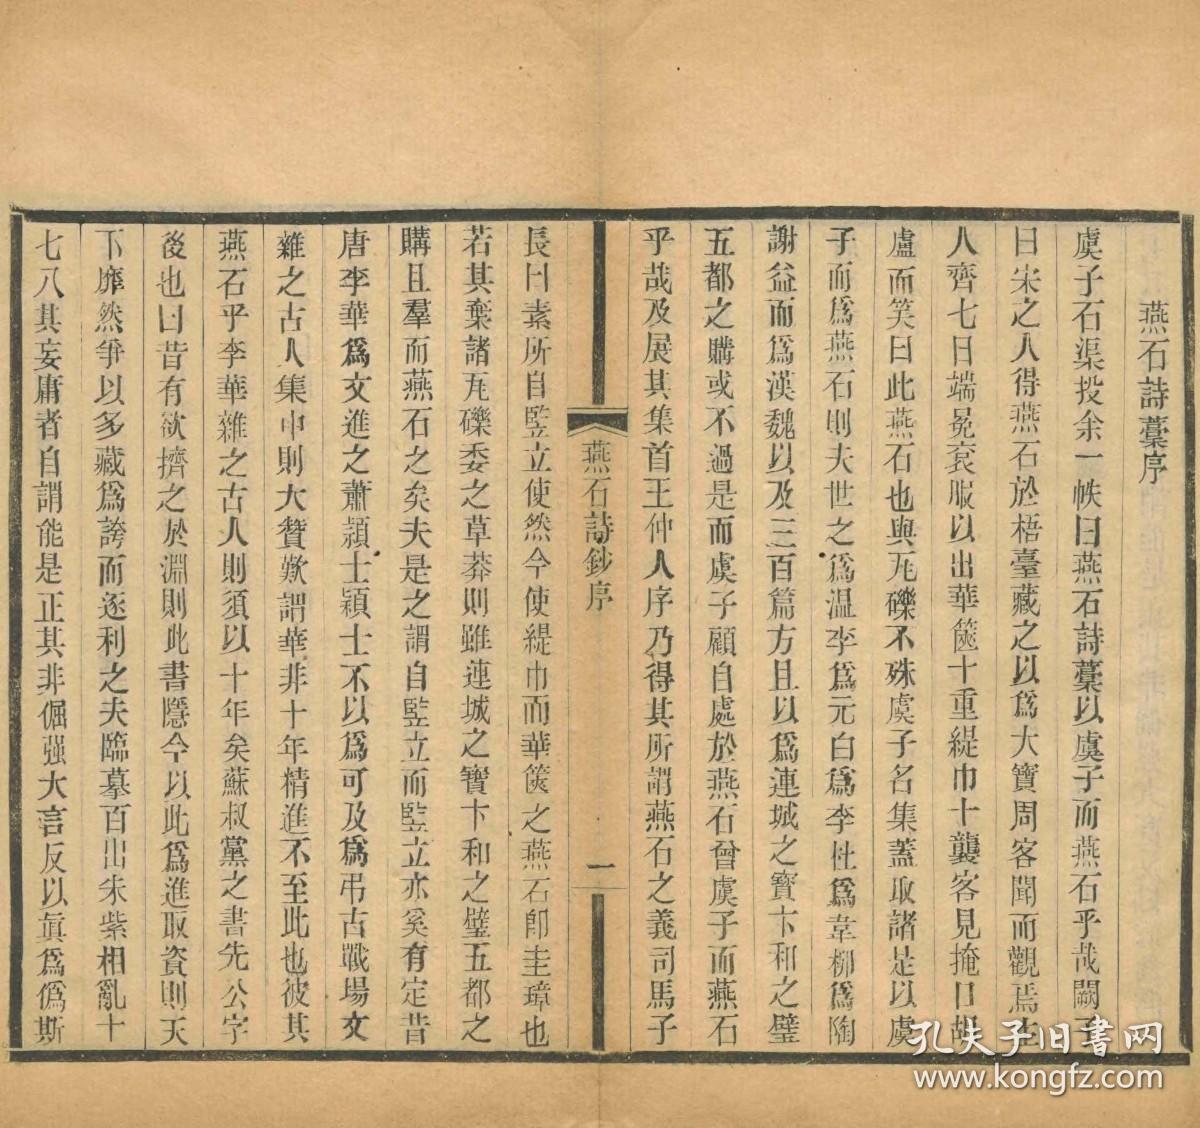 燕石詩藁序
虞子石渠投余一帙曰燕石詩藁以虞子而燕石乎哉闕子
曰宋之人得燕石於梧臺藏之以爲大寶周客聞而觀焉主
人齊七日端冕袞服以出華篋十重緹巾十襲客見掩口胡
盧而笑曰此燕石也與瓦礫不殊虞子名集蓋取諸是以虞
子而爲燕石則夫世之爲温李爲元白爲李杜爲韋柳爲陶
謝益而爲漢魏以及三百篇方且以爲連城之寶卞和之璧
五都之購或不過是而虞子顧自處於燕石曾虞子而燕石
乎哉及展其集首王仲人序乃得其所謂燕石之義司馬子
燕石詩鈔序
一
長曰素所自竪立使然今使緹巾而華篋之燕石卽圭璋也
若其棄諸瓦礫委之草莽則雖連城之寶卞和之璧五都之
購且羣而燕石之矣夫是之謂自竪立而竪立亦奚有定昔
唐李華爲文進之蕭頴士頴士不以爲可及爲弔古戰場文
雜之古人集中則大贊歎謂華非十年精進不至此也彼其
燕石乎李華雜之古人則須以十年矣蘇叔黨之書先公字
後也曰昔有欲擠之於淵則此書隱今以此爲進取資則天
下靡然爭以多藏爲誇而逐利之夫臨摹百出朱紫相亂十
七八其妄庸者自謂能是正其非倔强大言反以眞爲僞斯
孔夫子旧书网
www.kongfz.com